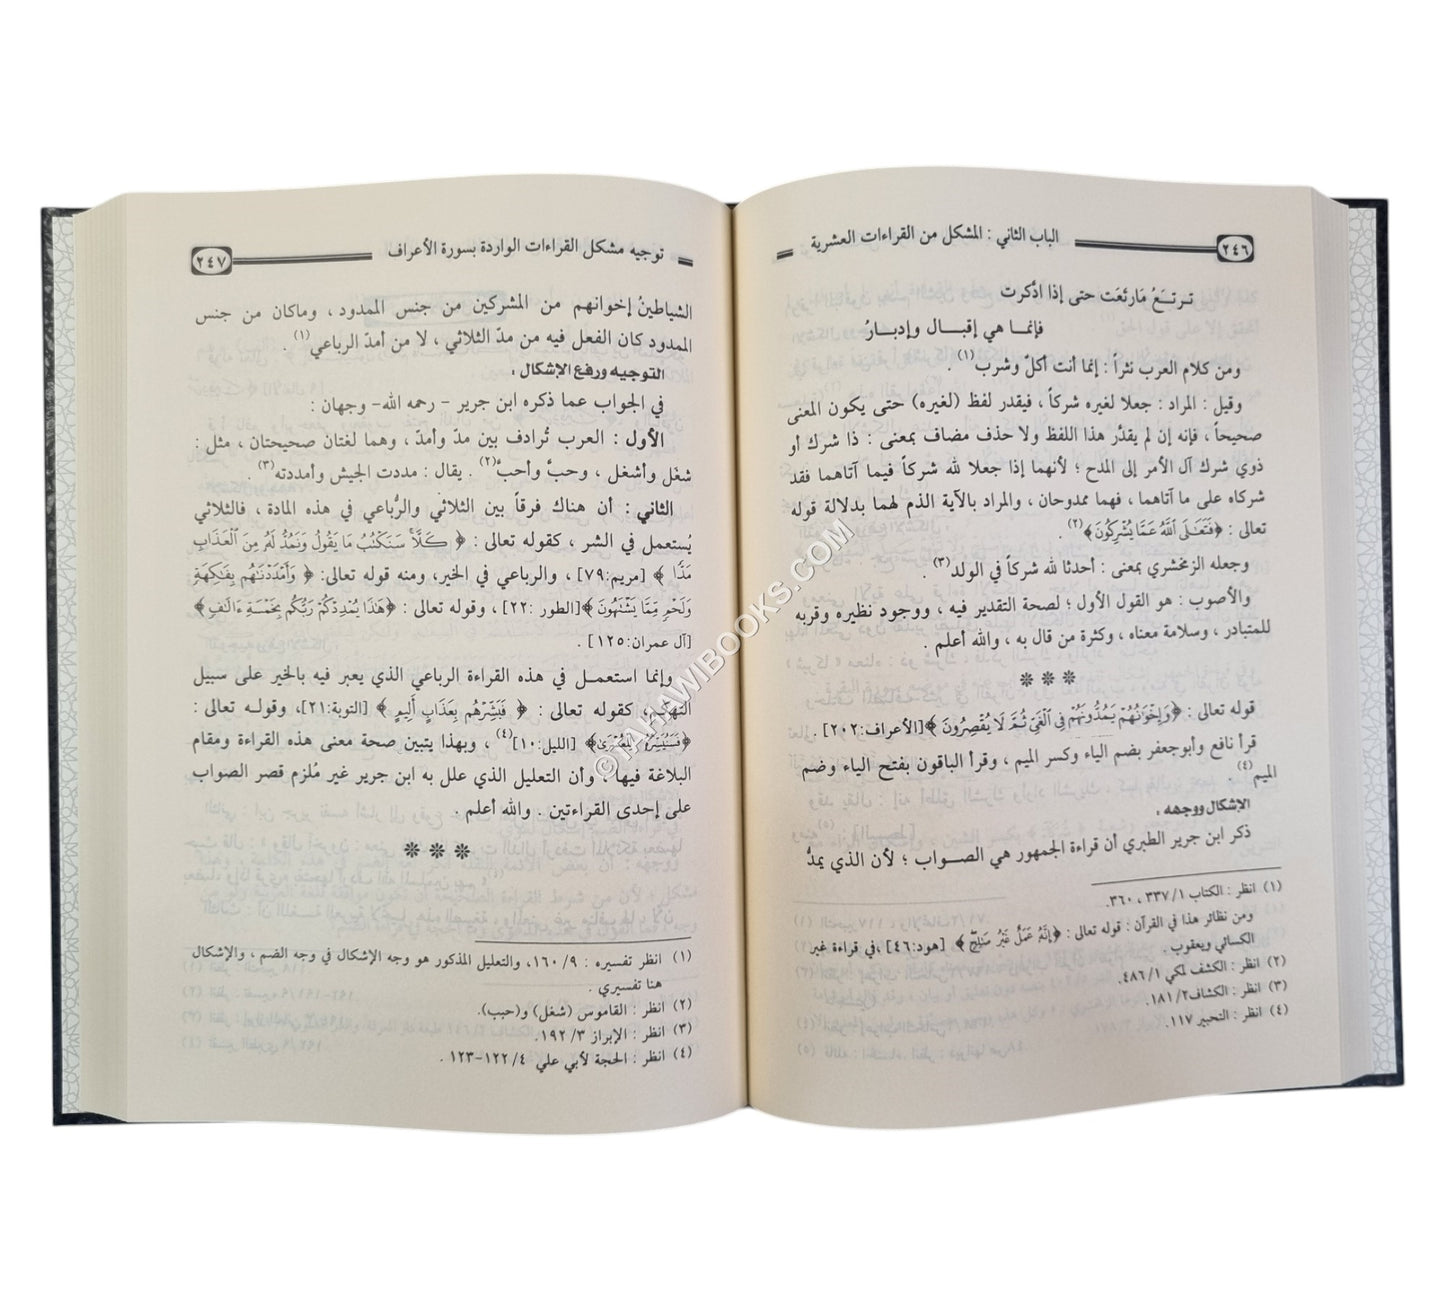 ٢٤٦ الباب الثاني : المشكل من القراءات العشرية
ترتعُ مَارتَعَت حتى إذا ادَّكرت
فإنما هي إقبال وإدبارُ
ومن كلام العرب نثراً : إنما أنت أكلٌ وشرب(١) .
وقيل : المراد : جعلا لغيره شركاً، فيقدر لفظ (لغيره) حتى يكون المعنى
صحيحاً ، فإنه إن لم يقدَّر هذا اللفظ ولا حذف مضاف بمعنى : ذا شرك أو
ذوي شرك آل الأمر إلى المدح ؛ لأنهما إذا جعلا لله شركاً فيما آتاهما فقد
شركاه على ما آتاهما ، فهما ممدوحان ، والمراد بالآية الذم لهما بدلالة قوله
تعالى : ﴿فَتَعَٰلَى ٱللَّهُ عَمَّا يُشْرِكُونَ﴾(٢) .
وجعله الزمخشري بمعنى : أحدثا لله شركاً في الولد(٣) .
والأصوب : هو القول الأول ؛ لصحة التقدير فيه ، ووجود نظيره وقربه
للمتبادر ، وسلامة معناه ، وكثرة من قال به ، والله أعلم .
* * *
قوله تعالى : ﴿وَإِخْوَٰنُهُمْ يَمُدُّونَهُمْ فِى ٱلْغَىِّ ثُمَّ لَا يُقْصِرُونَ﴾[الأعراف:٢٠٢] .
قرأ نافع وأبوجعفر بضم الياء وكسر الميم ، وقرأ الباقون بفتح الياء وضم
الميم(٤) .
الإشكال ووجهه .
ذكر ابن جرير الطبري أن قراءة الجمهور هي الصواب ؛ لأن الذي يمدُّ
(١) انظر : الكتاب ١/ ٣٣٧ ، ٣٦٠.
ومن نظائر هذا في القرآن : قوله تعالى : ﴿إِنَّهُۥ عَمَلٌ غَيْرُ صَٰلِحٍ﴾ [هود:٤٦] ،في قراءة غير
الكسائي ويعقوب .
(٢) انظر : الكشف لمكي ١/ ٤٨٦.
(٣) انظر : الكشاف٢/ ١٨١.
(٤) انظر : التحبير ١١٧.
توجيه مشكل القراءات الواردة بسورة الأعراف ٢٤٧
الشياطينُ إخوانهم من المشركين من جنس الممدود ، وماكان من جنس
الممدود كان الفعل فيه من مدّ الثلاثي ، لا من أمدّ الرباعي(١) .
التوجيه ورفع الإشكال .
في الجواب عما ذكره ابن جرير - رحمه الله- وجهان :
الأول : العرب تُرادف بين مدّ وأمدّ، وهما لغتان صحيحتان ، مثل :
شغَل وأشغل ، وحبَّ وأحبَّ(٢) . يقال : مددت الجيش وأمددته(٣) .
الثاني : أن هناك فرقاً بين الثلاثي والرُّباعي في هذه المادة ، فالثلاثي
يُستعمل في الشر ، كقوله تعالى : ﴿ كَلَّا سَنَكْتُبُ مَا يَقُولُ وَنَمُدُّ لَهُۥ مِنَ ٱلْعَذَابِ
مَدًّا ﴾ [مريم:٧٩] ، والرباعي في الخير، ومنه قوله تعالى: ﴿ وَأَمْدَدْنَٰهُم بِفَٰكِهَةٍ
وَلَحْمٍ مِّمَّا يَشْتَهُونَ﴾[الطور :٢٢] ، وقوله تعالى : ﴿هَٰذَا يُمْدِدْكُمْ رَبُّكُم بِخَمْسَةِ ءَالَٰفٍ﴾
[آل عمران:١٢٥] .
وإنما استعمل في هذه القراءة الرباعي الذي يعبر فيه بالخير على سبيل
التهكم، كقوله تعالى : ﴿ فَبَشِّرْهُم بِعَذَابٍ أَلِيمٍ ﴾ [التوبة:٢١]، وقوله تعالى :
﴿فَسَنُيَسِّرُهُۥ لِلْعُسْرَىٰ﴾ [الليل:١٠](٤) ، وبهذا يتبين صحة معنى هذه القراءة ومقام
البلاغة فيها ، وأن التعليل الذي علل به ابن جرير غير مُلزم قصر الصواب
على إحدى القراءتين . والله أعلم .
* * *
(١) انظر تفسيره : ٩/ ١٦٠، والتعليل المذكور هو وجه الإشكال في وجه الضم ، والإشكال
هنا تفسيري .
(٢) انظر : القاموس (شغل) و(حبب).
(٣) انظر : الإبراز ٣/ ١٩٢.
(٤) انظر : الحجة لأبي علي ٤/ ١٢٢-١٢٣ .
©TAHAWIBOOKS.COM